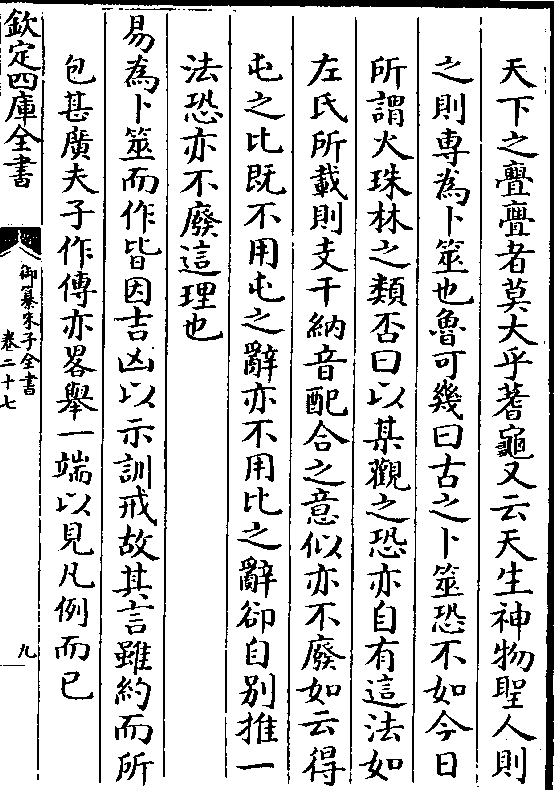 天下之亹亹者莫大乎蓍龜又云天生神物聖人則
之則専為卜筮也魯可幾曰古之卜筮恐不如今日
所謂火珠林之類否曰以某觀之恐亦自有這法如
左氏所載則支干納音配合之意似亦不廢如云得
屯之比既不用屯之辭亦不用比之辭卻自别推一
法恐亦不廢這理也
易為卜筮而作皆因吉凶以示訓戒故其言雖約而所
包甚廣夫子作傳亦畧舉一端以見凡例而已
欽定四庫全書
御纂朱子全書
卷二十七
九